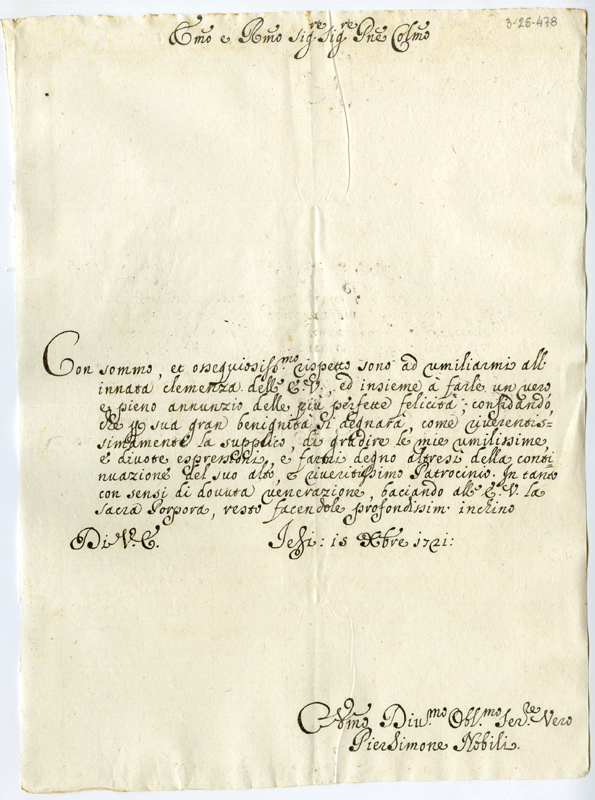 3-26-478
Emo e Rmo Sig.re Sig.re Pne Colmo
Con sommo, et ossequiosiss.mo rispetto sono ad umiliarmi all'
innata clemenza dell'E.V., ed insieme à farle un vero
e pieno annunzio delle più perfette felicità; confidando,
che p sua gran benignità si degnarà, come riverentis=
simamente la supplico, di gradire le mie umilissime
e divote espressioni, e farmi degno altresi della conti
nuazione del suo alto, e riveritissimo Patrocinio. In tanto
con sensi di dovuta venerazione, baciando all'E.V. la
sacra Porpora, resto facendole profondissim inchino
Di V.E. Jesi: 15 Xbre 1721:
Div.mo Obl.mo Ser.re Vero
PierSimone Nobili.